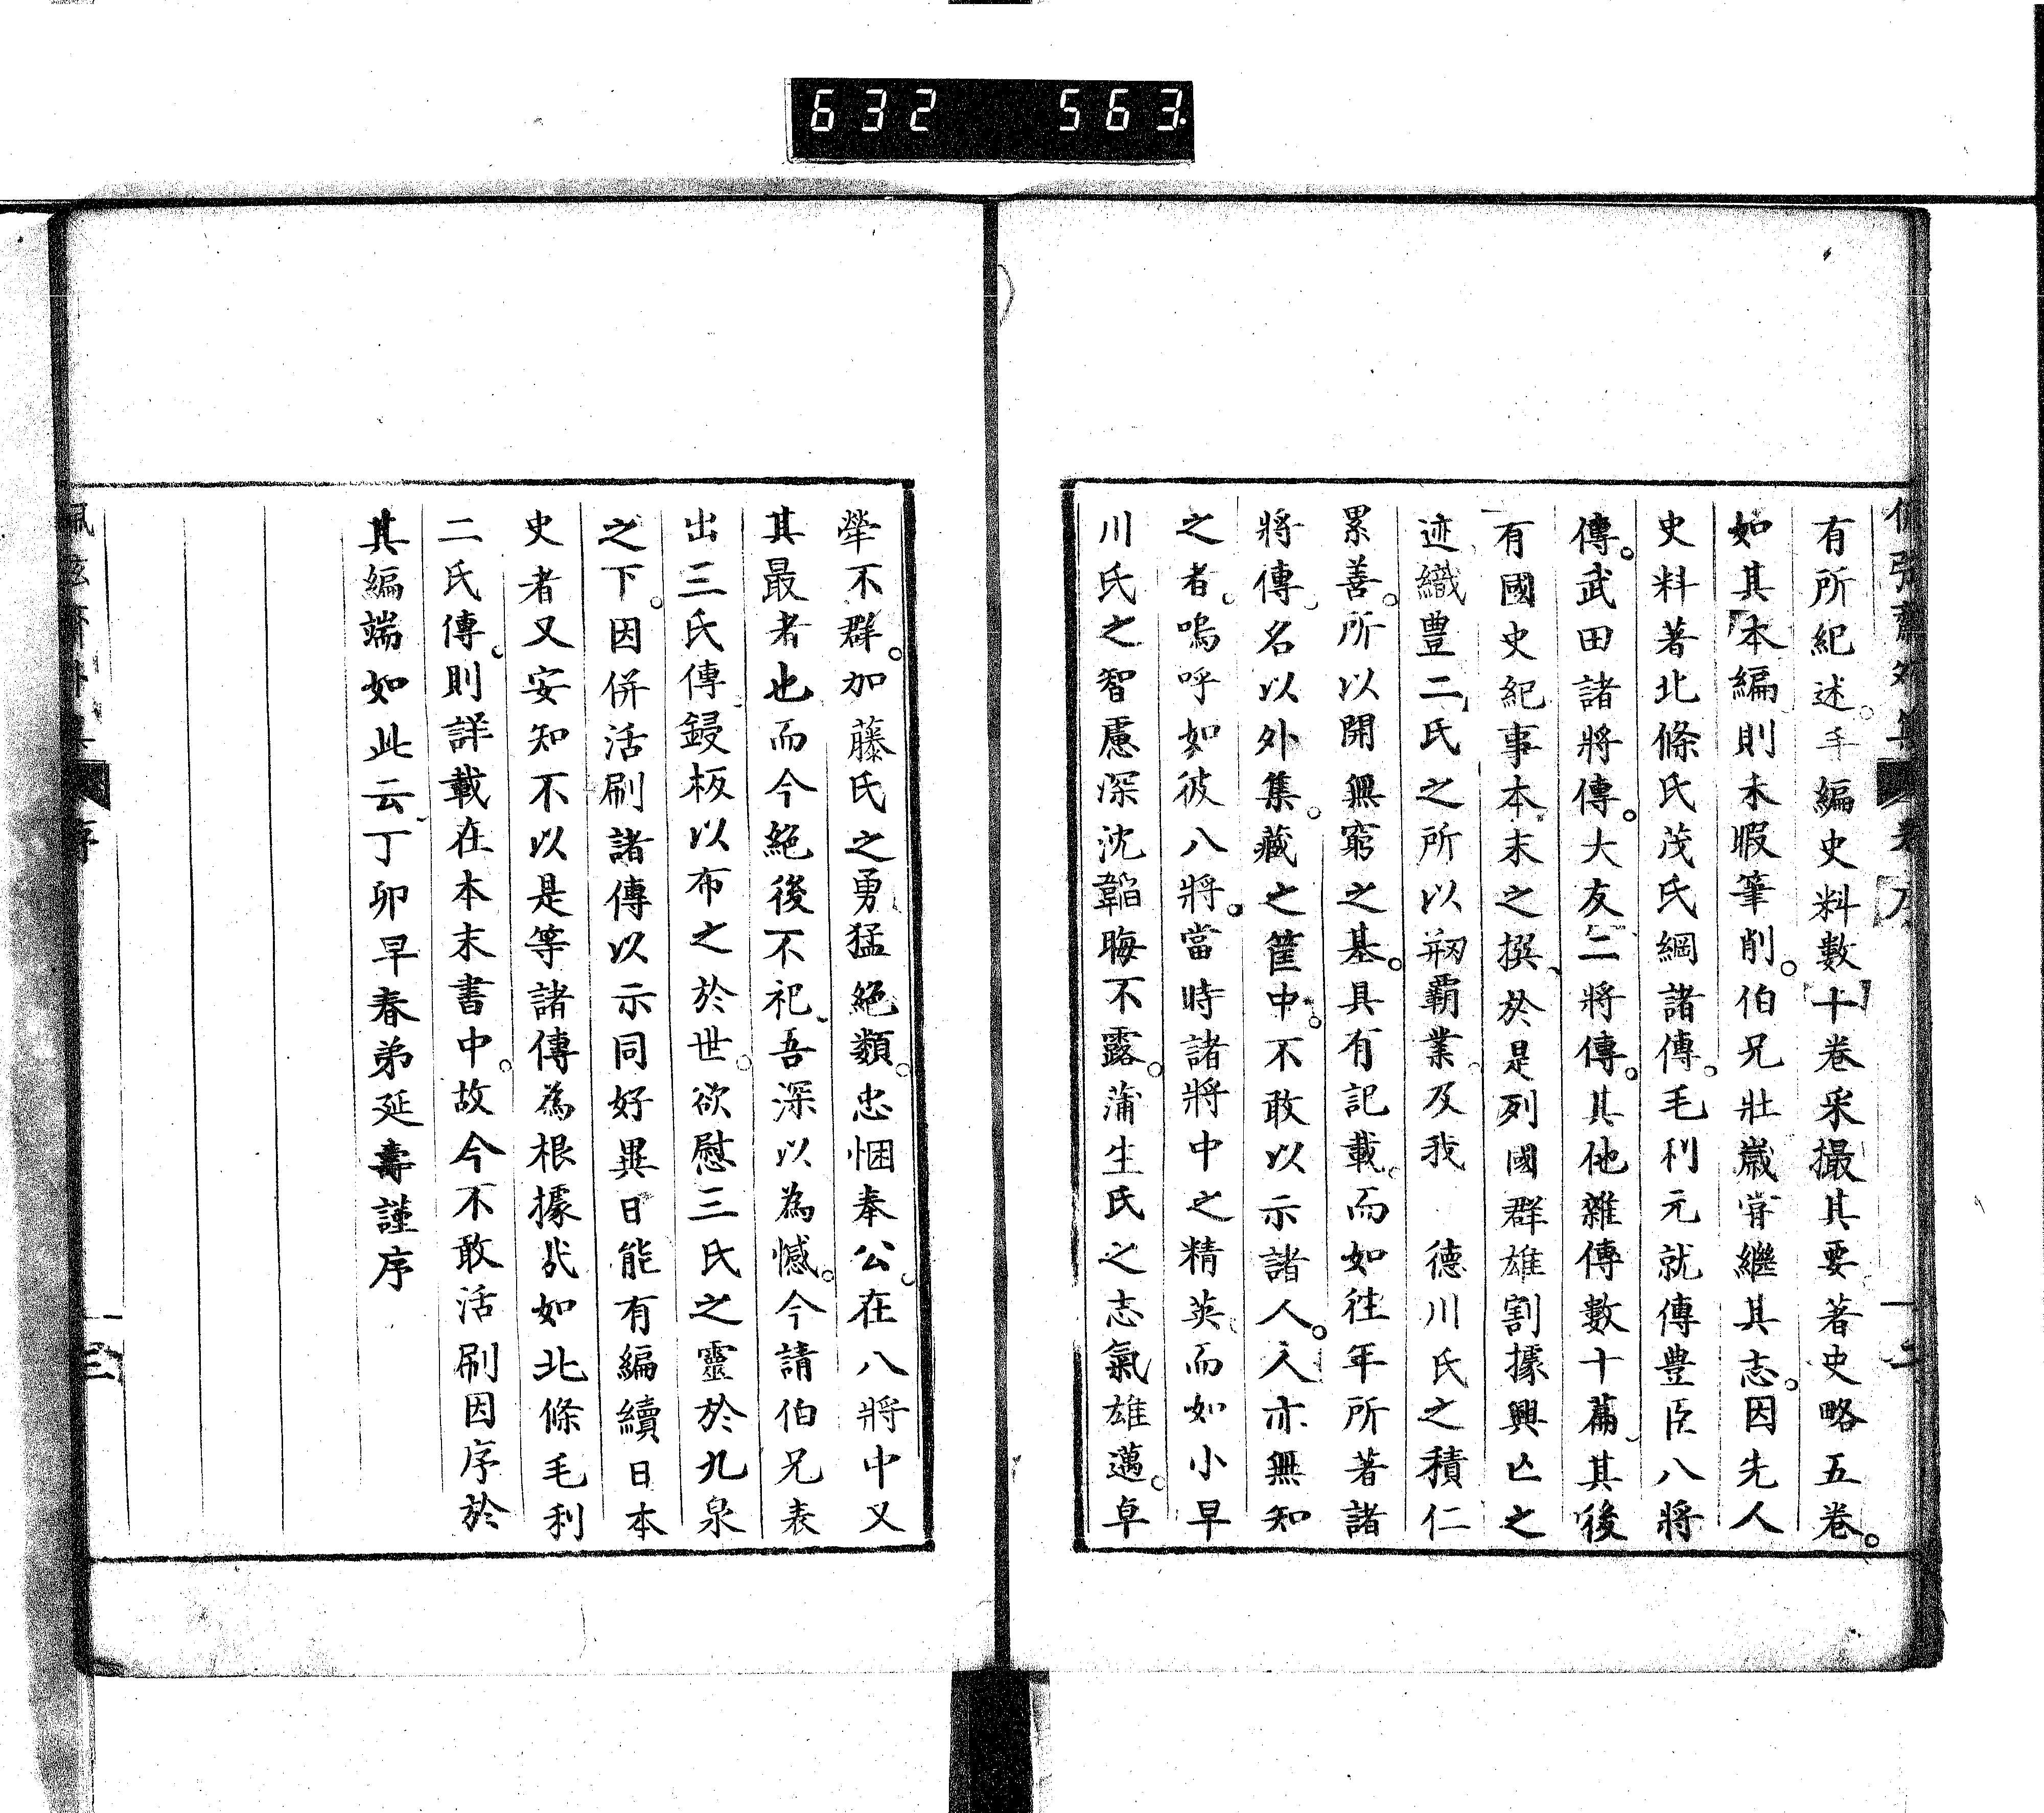 632 563.
有所紀述。手編史料數十卷采撮其要著史略五卷。
如其本編則未暇筆削。伯兄壯歲嘗繼其志。因先人
史料著北條氏茂氏綱諸傳。毛利元就傳豊臣八將
傳。武田諸將傳。大友二將傳。其他雜傳數十篇其後
有國史紀事本末之撰於是列國群雄割據興亡之
迹織豊二氏之所以剏覇業及我 德川氏之積仁
累善。所以開無窮之基。具有記載。而如往年所著諸
將傳名以外集。藏之筐中。不敢以示諸人。人亦無知
之者嗚呼如彼八將。當時諸將中之精英而如小早
川氏之智慮深沈韜晦不露。蒲生氏之志氣雄邁。卓
犖不群。加藤氏之勇猛絕類。忠悃奉公在八將中又
其最者也而今絕後不祀吾深以為憾。今請伯兄表
出三氏傳鋟板以布之於世。欲慰三氏之靈於九泉
之下。因併活刷諸傳以示同好異日能有編續日本
史者又安知不以是等諸傳為根據哉如北條毛利
二氏傳則詳載在本末書中。故今不敢活刷因序於
其編端如此云丁卯早春弟延壽謹序
序
三